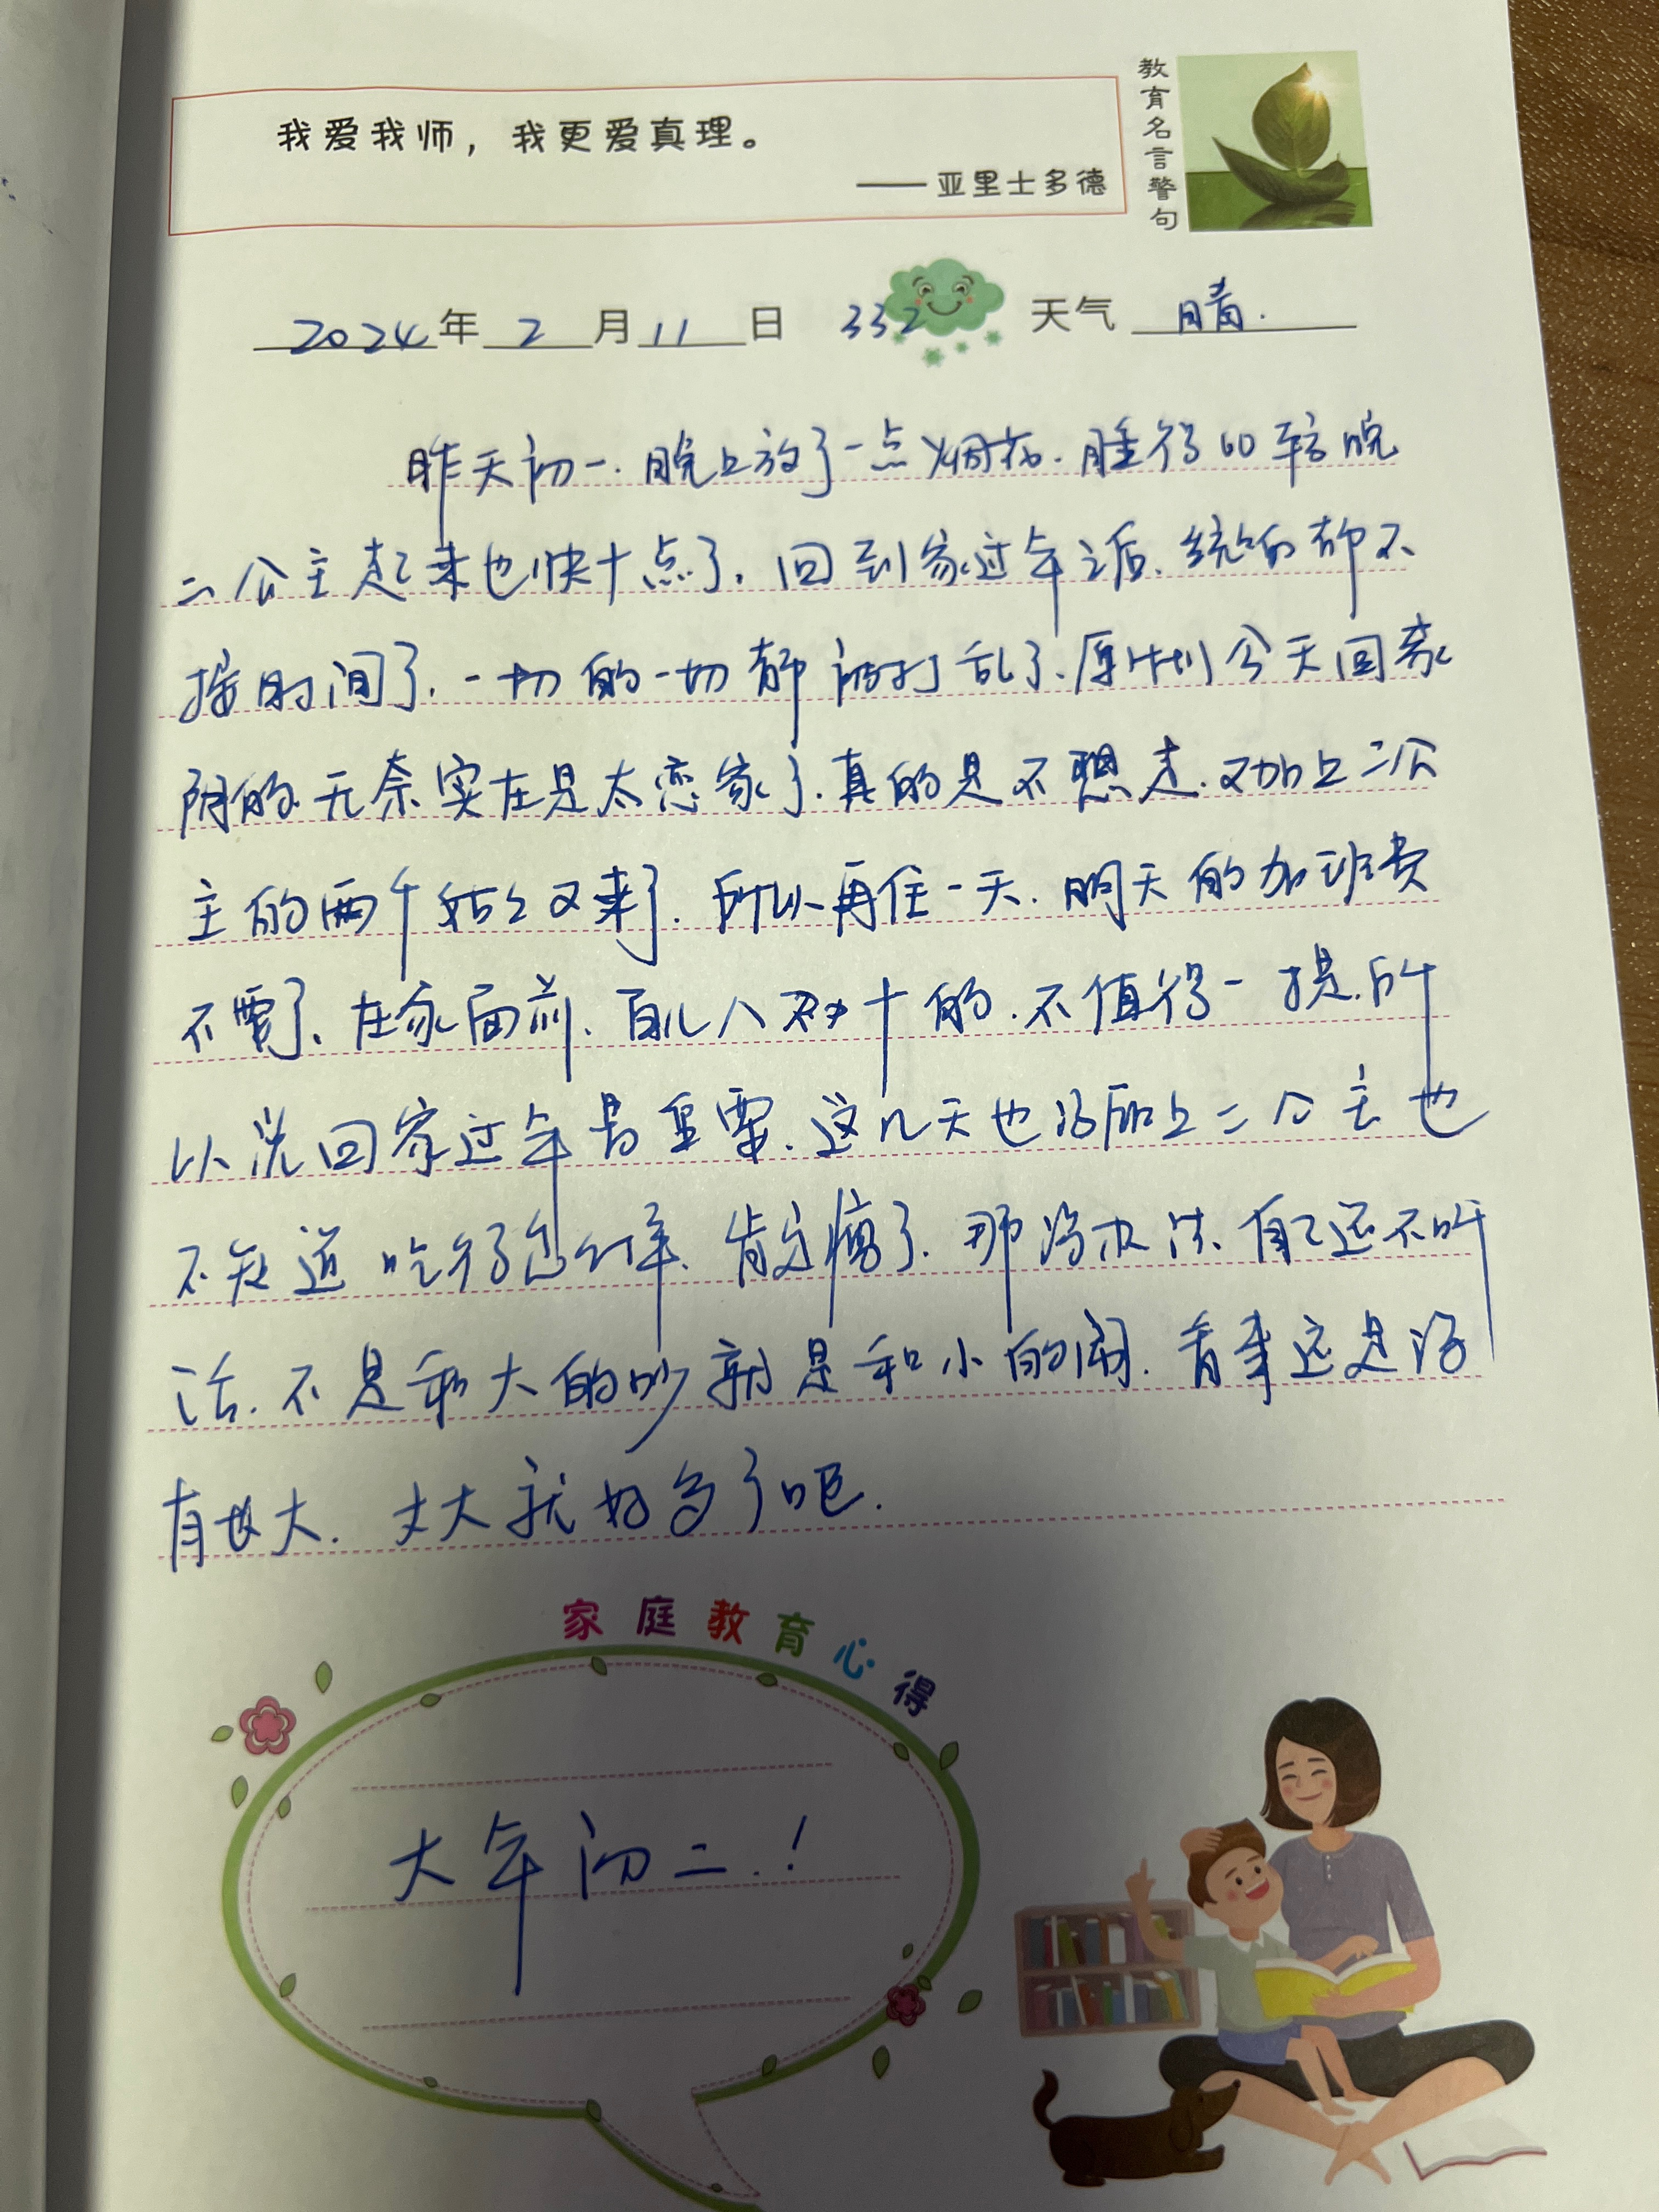 我爱我师，我更爱真理。
——亚里士多德
教育名言警句
2024年2月11日 332 天气 晴.
昨天初一.晚上放了一点烟花.睡得的较晚
二公主起来也快十点了.回到家过年之后.统统都不
按时间了.一切的一切都被打乱了.原计划今天回
阴的.无奈实在是太恋家了.真的是不想走.又加上二公
主的两个姑姑又来了.所以再住一天.明天的加班费
不要了.在家面前.百儿八十的.不值得一提.所
以说回家过年最重要.这几天也没跟上二公主也
不知道吃得怎么样.肯定瘦了.那没办法.自己还不听
话.不是和大的吵就是和小的闹.看来还是没
有长大.长大就好多了吧.
家庭教育心得
大年初二.!